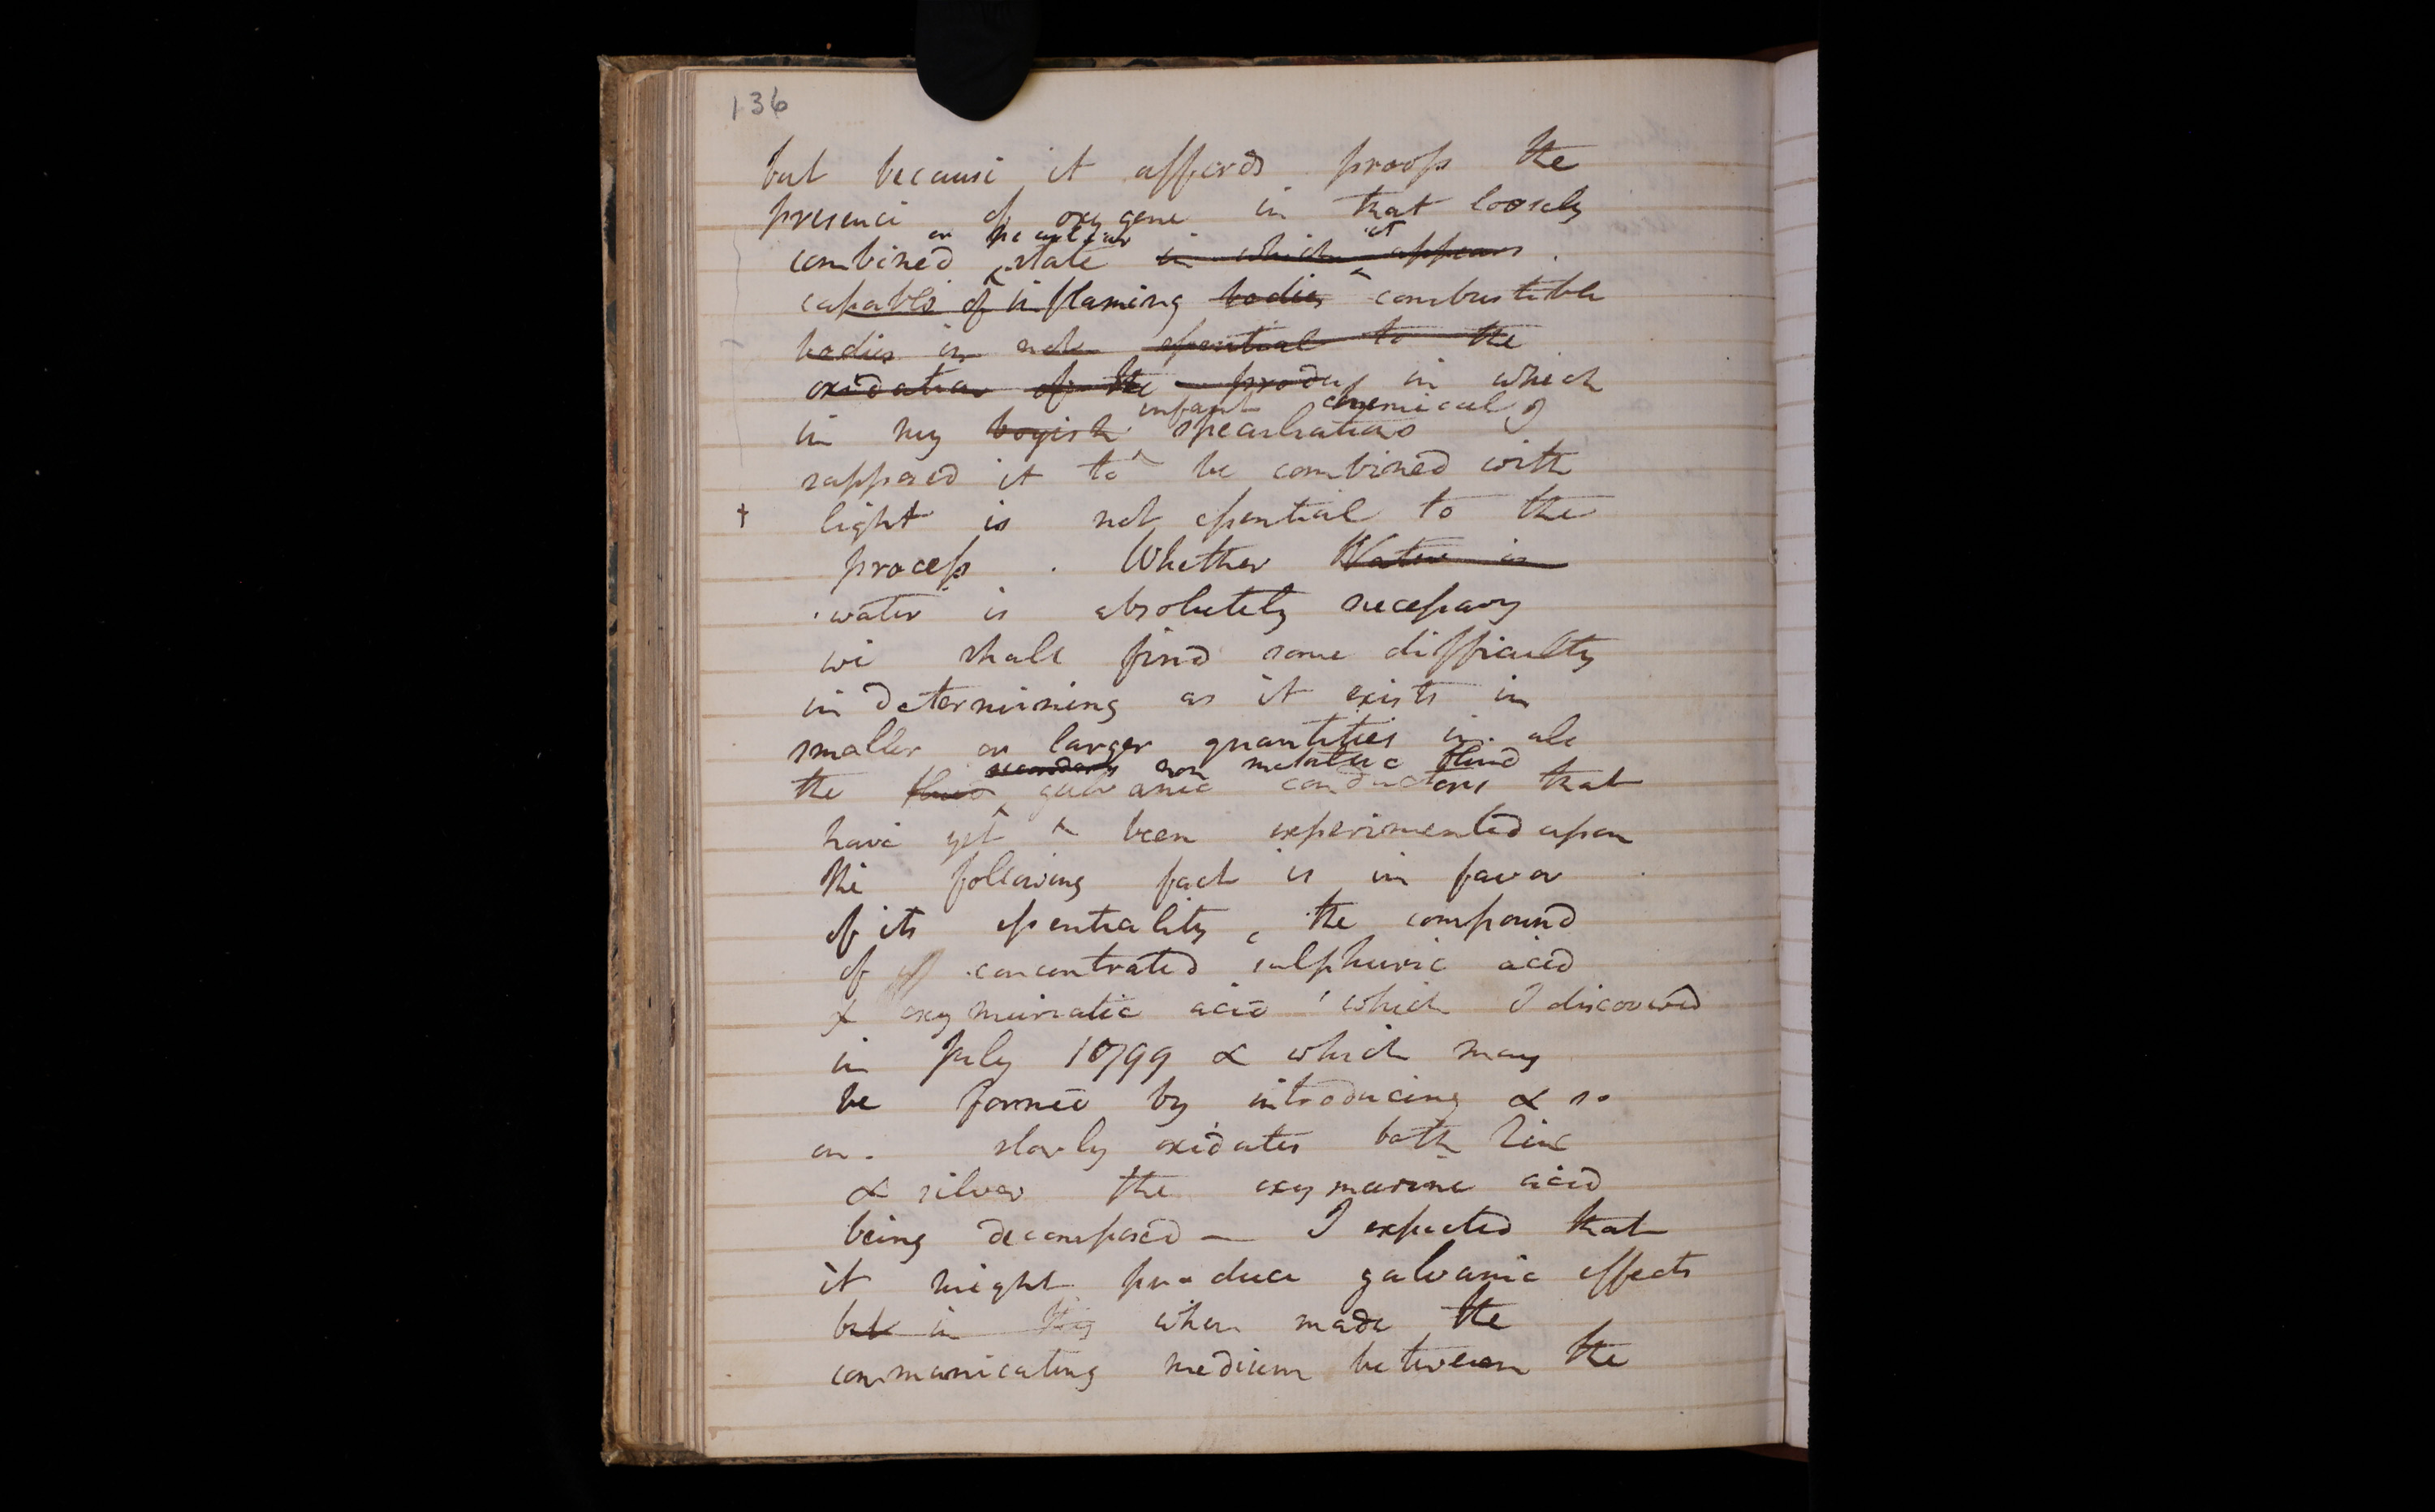 136
but because it affords proofs the
presence of oxygene in that loosely
or peculiar it
combined state in which appears
capable of inflaming bodies combustible
bodies is not essential to the
oxidation of the produc in which
infant chemical
in my boyish speculations I
supposed it to be combined with
† light is not essential to the
process . Whether Water is
water is absolutely necessary
we shall find some difficulty
in determining as it exists in
smaller or larger quantities in all
secondary non metallic fluid
the fluid galvanic conductors that
have yet been experimented upon
The following fact is in favor
of its essentiality , the compound
of concentrated sulphuric acid
& oxymuriatic acid which I discovered
in July 1799 & which may
be formed by introducing & so
on . slowly oxidates both Zinc
& silver the oxymarine acid
being decomposed — I expected that
it might produce galvanic effects
but in this when made the
communicating medium between the